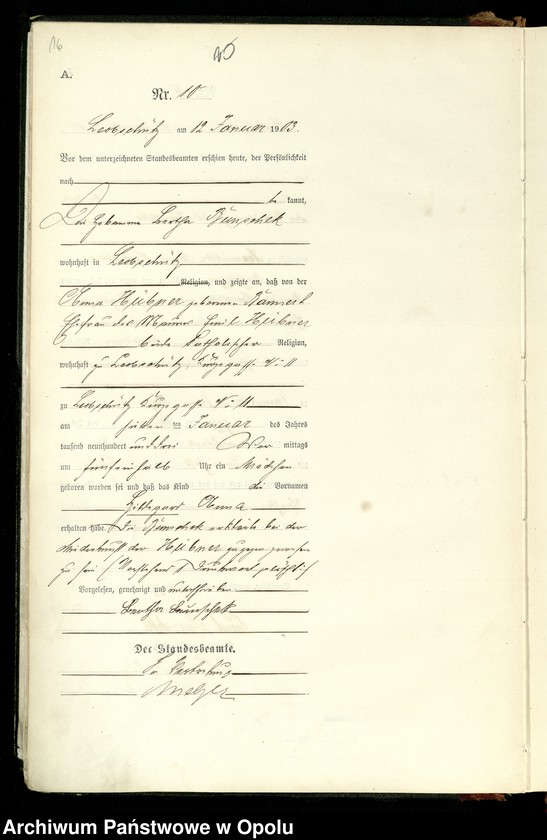 16
10
A.
Nr. 10
Leobschütz am 12 Januar 1903.
Vor dem unterzeichneten Standesbeamten erschien heute, der Persönlichkeit
nach
be kannt,
Die Hebamme Bertha
wohnhaft in Leobschütz
Religion, und zeigte an, daß von der
Hübner geborenen
Ehefrau des Maurers Emil Hübner
beide katholischer Religion,
wohnhaft zu Leobschütz, № 11
zu Leobschütz № 11
am ten Januar des Jahres
tausend neunhundert und drei Vor mittags
um fünfeinhalb Uhr ein Mädchen
geboren worden sei und daß das Kind die Vornamen
Hildegard
erhalten habe. Die erklärte bei der
Niederkunft der Hübner zugegen gewesen
zu sein
Vorgelesen, genehmigt und unterschrieben
Bertha
Der Standesbeamte.
In Vertretung
Archiwum Państwowe w Opolu